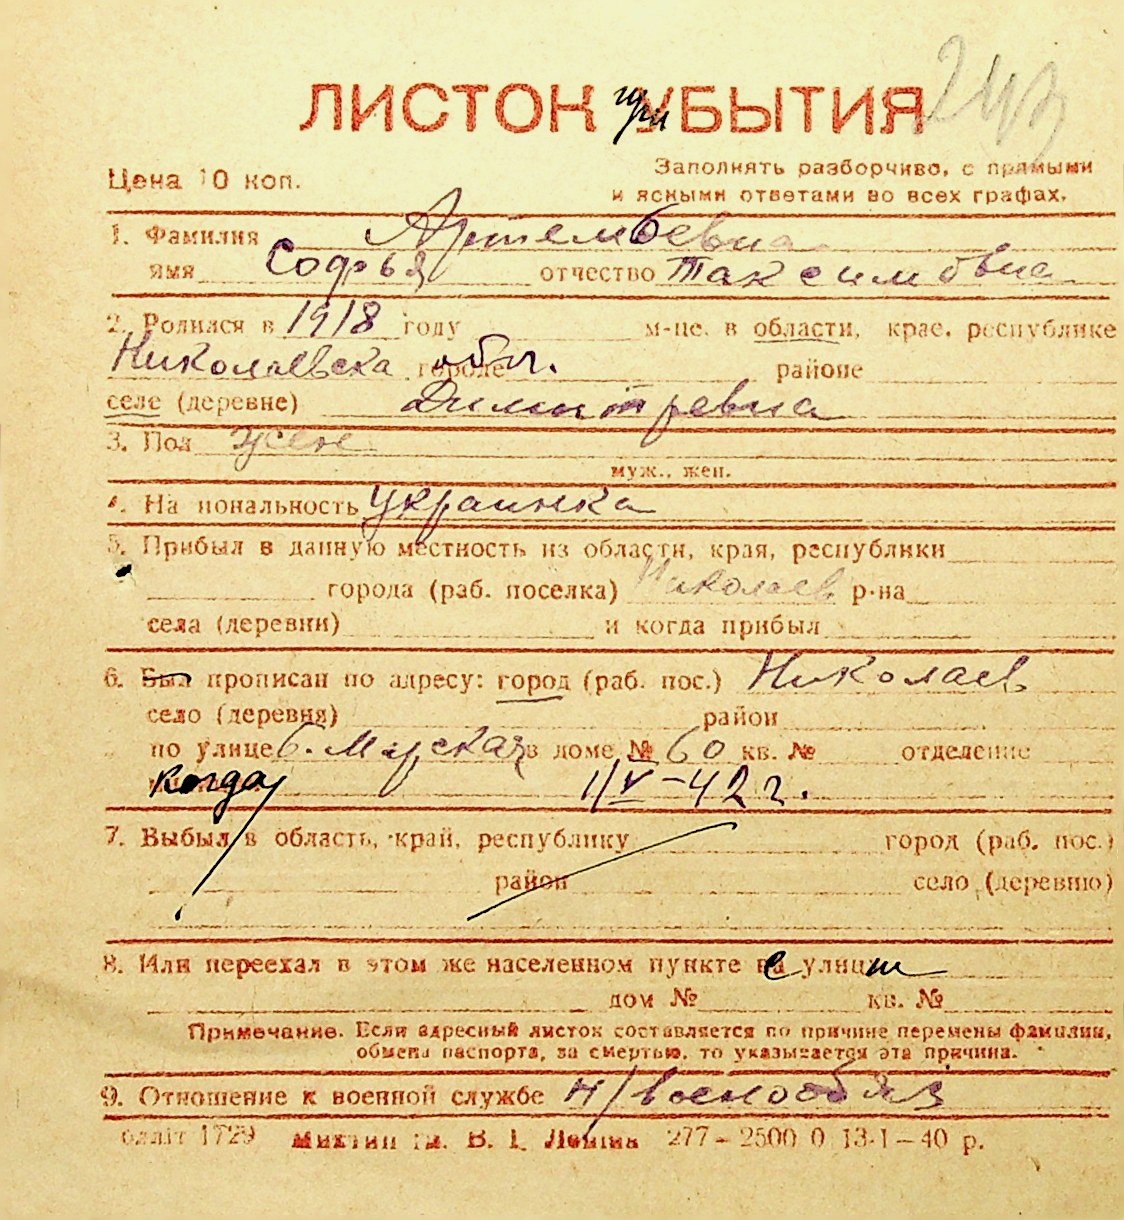 243
ЛИСТОК при УБЫТИЯ
Цена 10 коп.
Заполнять разборчиво, с прямыми
и ясными ответами во всех графах.
1. Фамилия Артемьевна
имя Софья отчество Максимовна
2. Родился в 1918 году м-це, в области, крае, республике
Николаевска городе обл. районе
селе (деревне) Димитревна
3. Пол жен
муж., жен.
4. Национальность украинка
5. Прибыл в данную местность из области, края, республики
города (раб. поселка) Николаев р-на
села (деревни) и когда прибыл
6. Был прописан по адресу: город (раб. пос.) Николаев
село (деревня) район
по улице Б. Морская в доме № 60 кв. № отделение
когда 1/V-42 г.
7. Выбыл в область, край, республику город (раб. пос.)
район село (деревню)
8. Или переехал в этом же населенном пункте с улиц
дом № кв. №
Примечание. Если адресный листок составляется по причине перемены фамилии,
обмена паспорта, за смертью, то указывается эта причина.
9. Отношение к военной службе н/военообяз
1729 В. І. Леніна 277–2500 0 13-1–40 р.